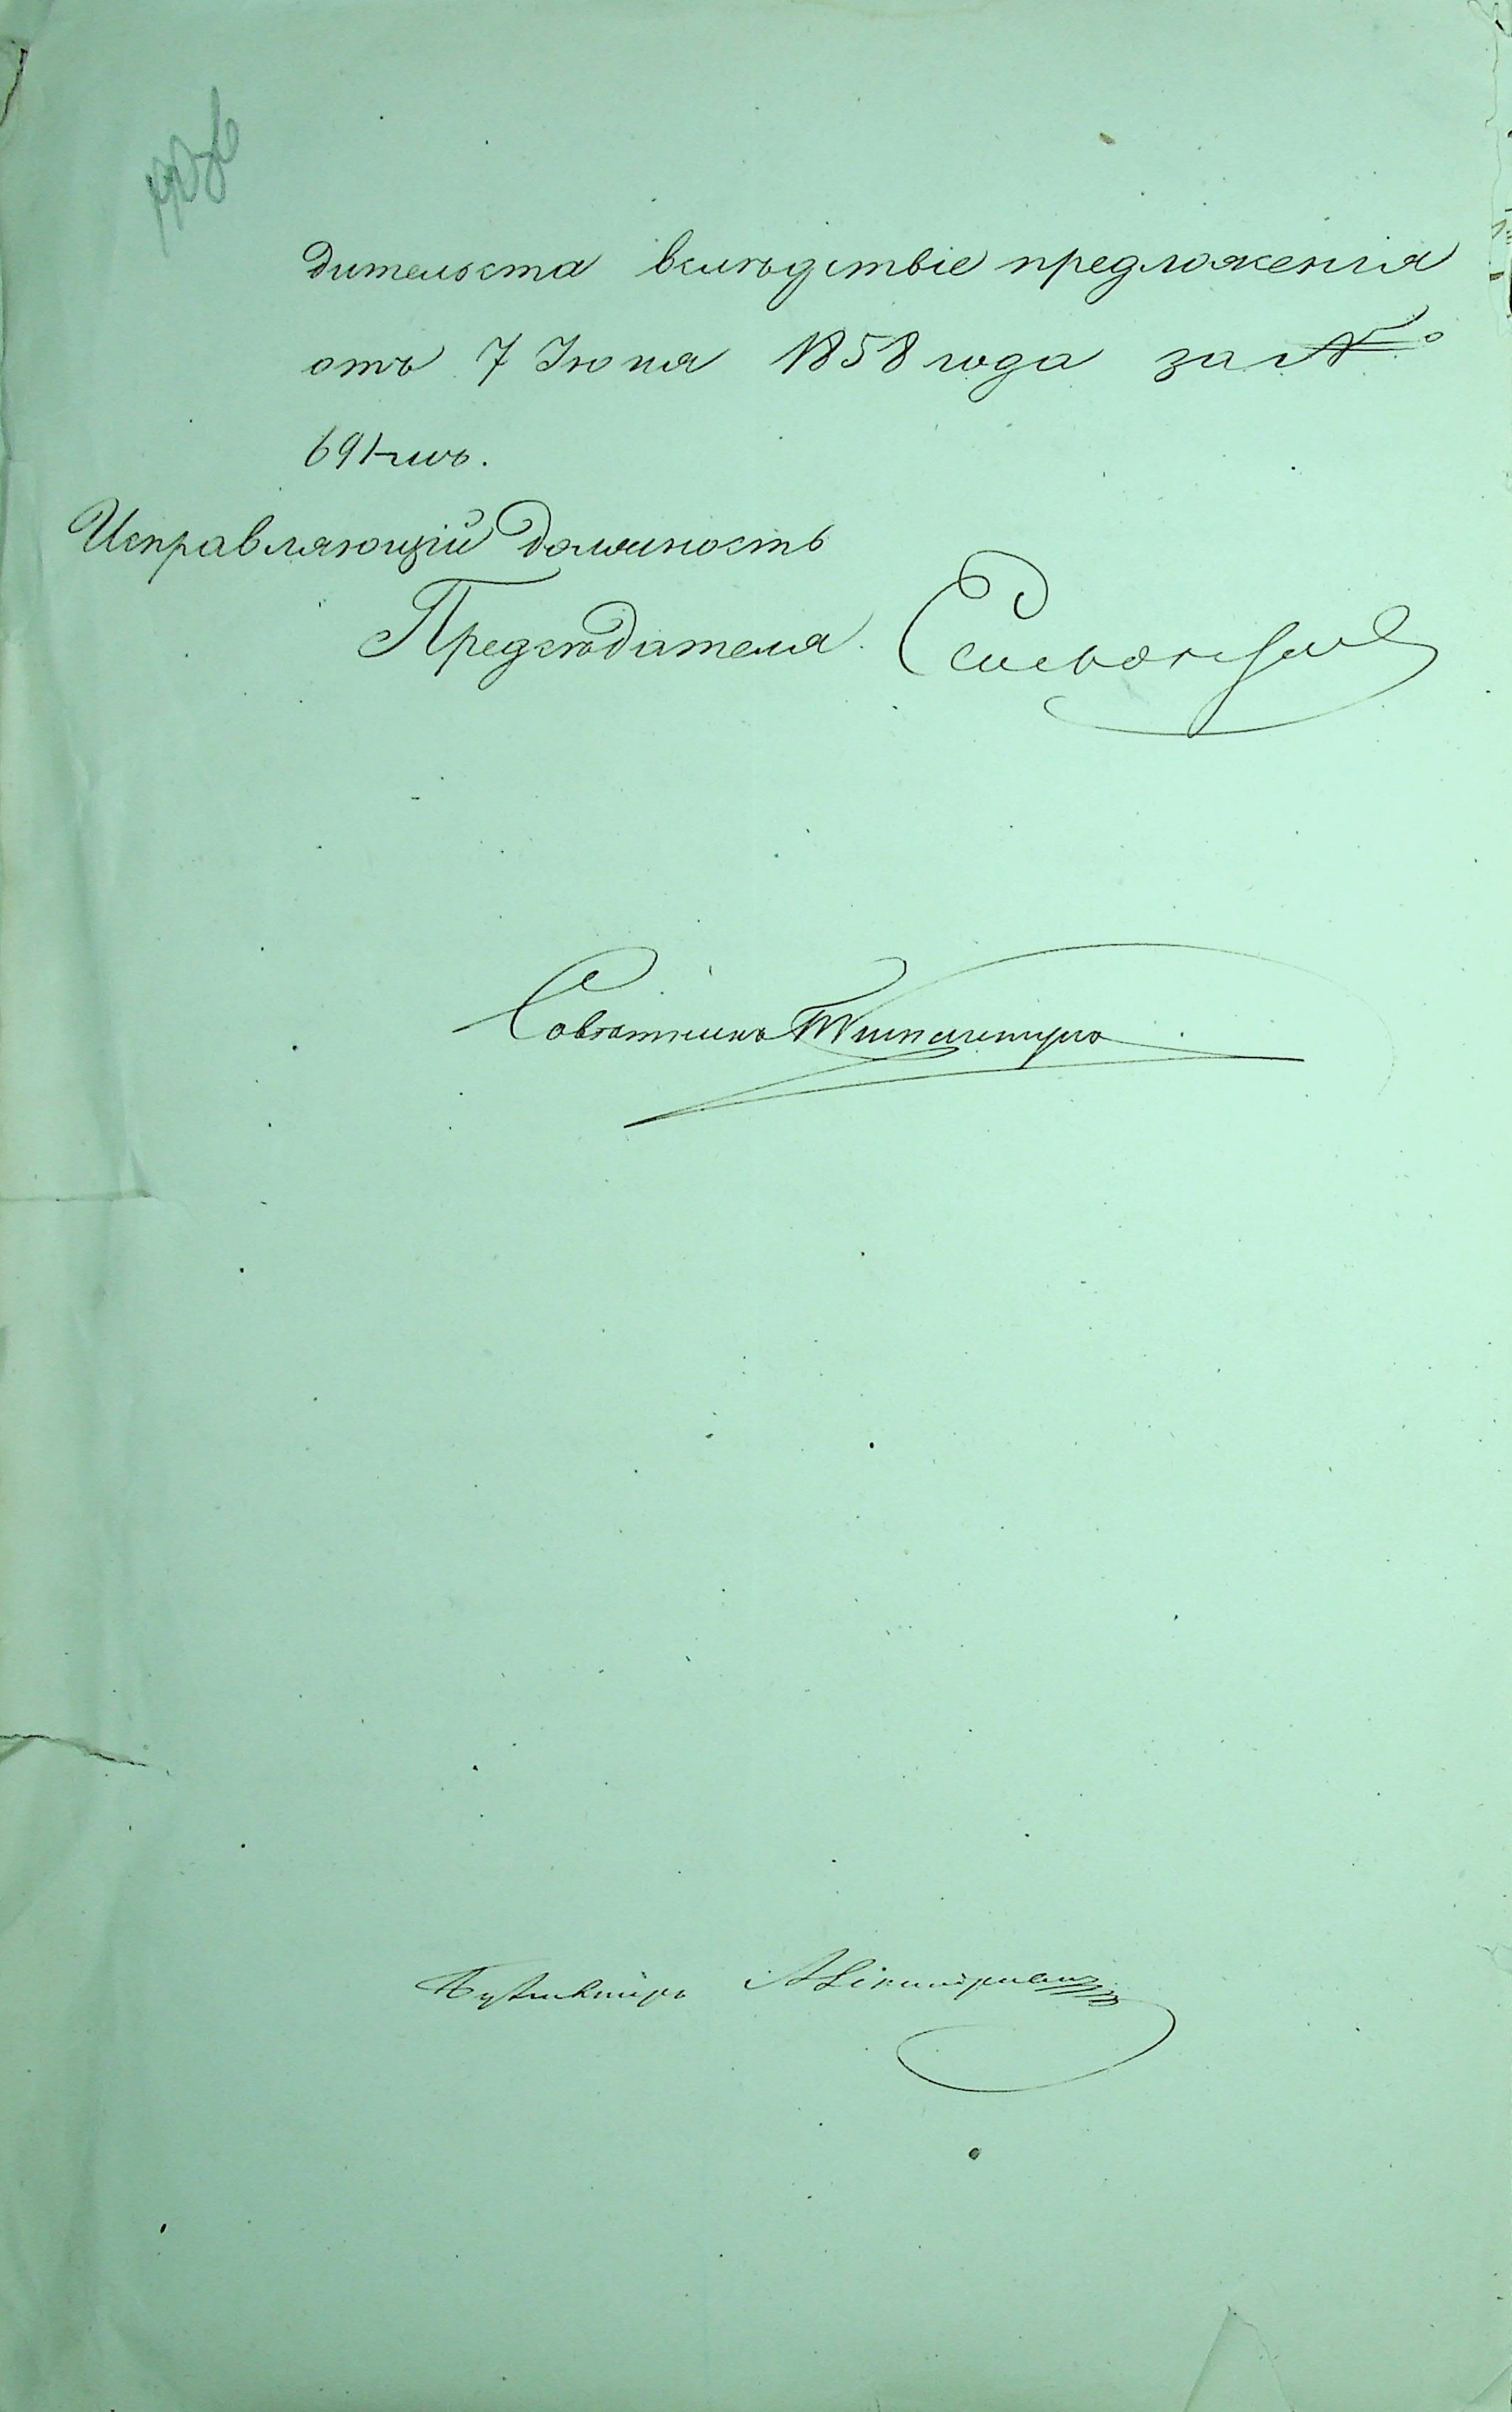 дительста вслѣдствіе предложенія
отъ 7 Іюня 1858 года за №
691-мъ.
Исправляющій должность
Предсѣдателя
Совѣтникъ
Бухгалтеръ